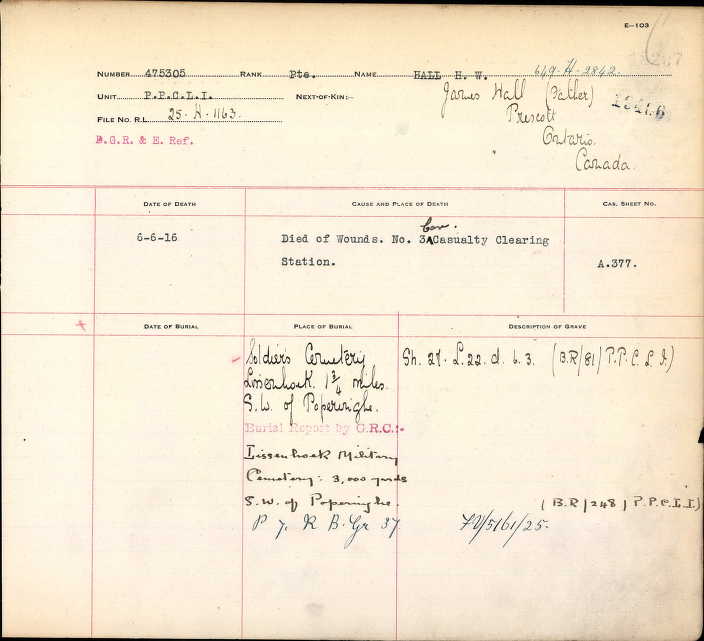 E-103
NUMBER 475305 RANK Pte. NAME HALL H. W. 649-H-2842.
UNIT P.P.C.L.I. NEXT-OF-KIN:- James Hall (Father)
FILE NO. R.L. 25-H-1163. Prescott
B.G.R. & E. Ref. Ontario.
Canada.
DATE OF DEATH CAUSE AND PLACE OF DEATH CAS. SHEET NO.
6-6-16 Died of Wounds. No. 3 Can. Casualty Clearing
Station. A.377.
DATE OF BURIAL PLACE OF BURIAL DESCRIPTION OF GRAVE
Soldier's Cemetery Sh. 27. L.22. d. 6. 3. (B.R/81/P.P.C.L.I.)
Lissenhoek. 1 3/4 miles.
S.W. of Poperinghe.
Burial Report by G.R.C.:-
Lissenhoek Military
Cemetery: 3,000 yards
S.W. of Poperinghe. (B.R/248/P.P.C.L.I.)
P 7. R B. Gr 37